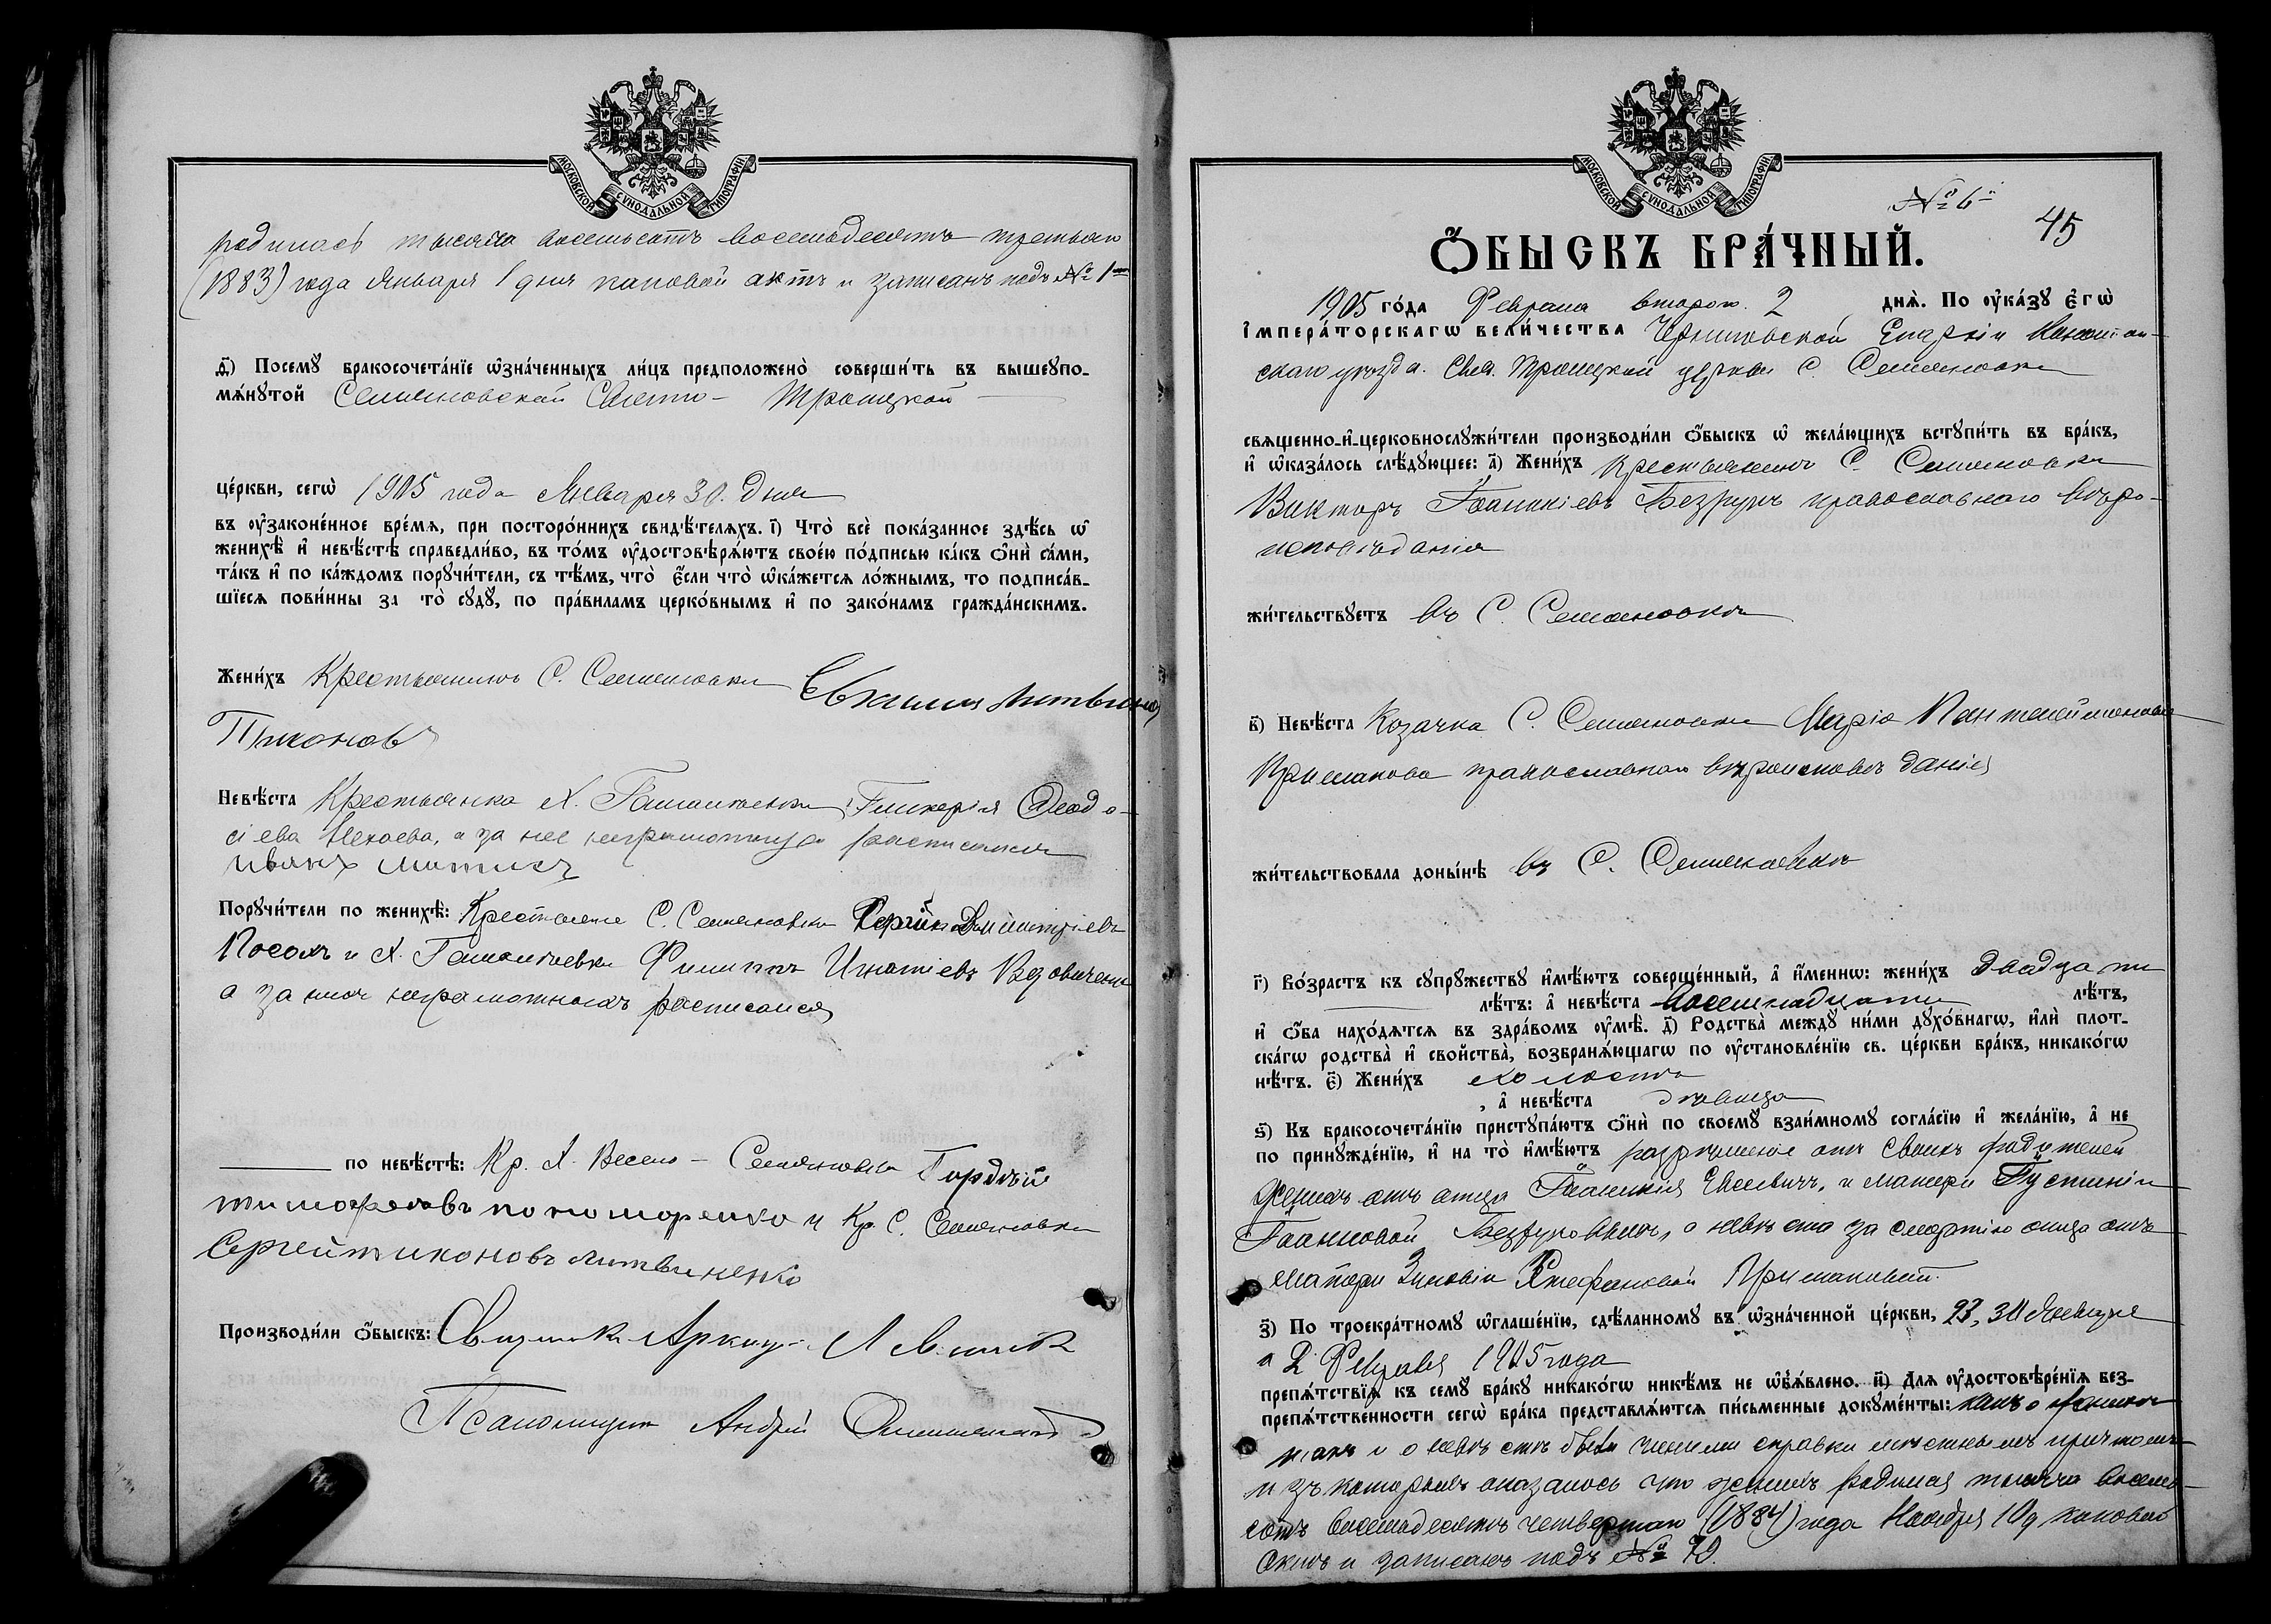 МОСКОВСКОЙ СѴНОДАЛЬНОЙ ТИПОГРАФІИ
родилась тысяча восемьсотъ восемьдесятъ третьяго
(1883) года Января 1 дня каковой актъ и записанъ подъ № 1
д҃) Посемꙋ бракосочета́нїе ѡ҆зна́ченныхъ ли́цъ предположено̀ соверши́ть въ вышеꙋпо-
мѧ́нꙋтой Семеновской Свято- Троицкой
це́ркви, сегѡ̀ 1905 года Января 30. дня
въ ᲂу҆законе́нное вре́мѧ, при посторо́ннихъ свидѣ́телѧхъ. і҃) Что̀ всѐ пока́занное здѣ́сь ѡ҆
женихѣ̀ и҆ невѣ́стѣ справедли́во, въ то́мъ ᲂу҆достовѣрѧ́ютъ свое́ю по́дписью ка́къ ѻ҆нѝ са́ми,
та́къ и҆ по ка́ждомъ порꙋчи́тели, съ тѣ́мъ, что̀ є҆́сли что̀ ѡ҆ка́жетсѧ ло́жнымъ, то подписа́в-
шїесѧ пови́нны за то̀ сꙋдꙋ̀, по пра́виламъ церко́внымъ и҆ по зако́намъ гражда́нскимъ.
Жени́хъ Крестьянинъ С. Семеновки
Тихоновъ
Невѣ́ста Крестьянка Х. Гликерія Ѳеодо-
сіева а за нее неграмотную расписался
иванъ
Порꙋчи́тели по женихѣ̀: Крестьяне С. Семеновки Сергій Димитріевъ
Посохъ и Х. Филиппъ Игнатіевъ
а за нихъ неграмотныхъ расписался
по невѣ́стѣ: Кр. Х. Весело - Семеновка Гордѣй
тимофеевъ и Кр. С. Семеновки
Сергей тихоновъ литвиненко
Производи́ли ѻ҆́быскъ: Священникъ
Псаломщикъ Андрей
МОСКОВСКОЙ СѴНОДАЛЬНОЙ ТИПОГРАФІИ
№ 6
45
Ѻ҆́БЫСКЪ БРА́ЧНЫЙ.
1905 го́да Февраля второго 2 днѧ̀. По ᲂу҆ка́зꙋ є҆гѡ̀
і҆мпера́торскагѡ вели́чества Черниговской Епархіи Конотоп-
скаго уѣзда. Свя. Троицкой церкви С. Семеновки
свѧщенно-и҆-церковнослꙋжи́тели производи́ли ѻ҆́быскъ ѡ҆ жела́ющихъ встꙋпи́ть въ бра́къ,
и҆ ѡ҆каза́лось слѣ́дꙋющее: а҃) Жени́хъ Крестьянинъ С. Семеновки
Викторъ Іоанникіевъ Безрукъ православнаго вѣро-
исповѣданія
жи́тельствꙋетъ въ С. Семеновкѣ
в҃) Невѣ́ста Козачка С. Семеновки Марія Пантелеймонова
Примакова православнаго вѣроисповѣданія
жи́тельствовала доны́нѣ въ С. Семеновкѣ
г҃) Во́зрастъ къ сꙋпрꙋ́жествꙋ и҆мѣ́ютъ соверше́нный, а҆ и҆́меннѡ: жени́хъ двадцати
лѣ́тъ: а҆ невѣ́ста восемнадцати лѣ́тъ,
и҆ ѻ҆́ба нахо́дѧтсѧ въ здра́вомъ ᲂу҆мѣ̀. д҃) Родства̀ междꙋ̀ ни́ми дꙋхо́внагѡ, и҆лѝ плот-
ска́гѡ родства̀ и҆ свойства̀, возбранѧ́ющагѡ по ᲂу҆становле́нїю св. це́ркви бра́къ, никако́гѡ
нѣ́тъ. є҃) Жени́хъ холостъ
, а҆ невѣ́ста дѣвица
ѕ҃) Къ бракосочета́нїю пристꙋпа́ютъ ѻ҆нѝ по своемꙋ̀ взаи́мномꙋ согла́сїю и҆ жела́нїю, а҆ не
по принꙋжде́нїю, и҆ на то̀ и҆мѣ́ютъ разрѣшеніе отъ своихъ родителей
женихъ отъ отца Іоанникія Евсевича, и матери Іустиніи
Іоанновой Безруковыхъ, а невѣста за смертію отца отъ
матери Зиновіи Стефановой Примаковой.
з҃) По троекра́тномꙋ ѡ҆глаше́нїю, сдѣ́ланномꙋ въ ѡ҆зна́ченной це́ркви, 23, 30 Января
и 2 Февраля 1905 года
препѧ́тствїѧ къ семꙋ̀ бра́кꙋ никако́гѡ никѣ́мъ не ѡ҆б̾ѧ́влено. и҃) Длѧ ᲂу҆достовѣре́нїѧ без-
препѧ́тственности сегѡ̀ бра́ка представлѧ́ютсѧ пи́сьменные докꙋме́нты: какъ о женихѣ
такъ и о невѣстѣ были чинимы справки мѣстнымъ причтомъ
изъ которыхъ оказалось что женихъ родился тысяча восемь-
сотъ восемьдесятъ четвертаго (1884) года Ноября 10 д каковой
актъ и записанъ подъ № 70.